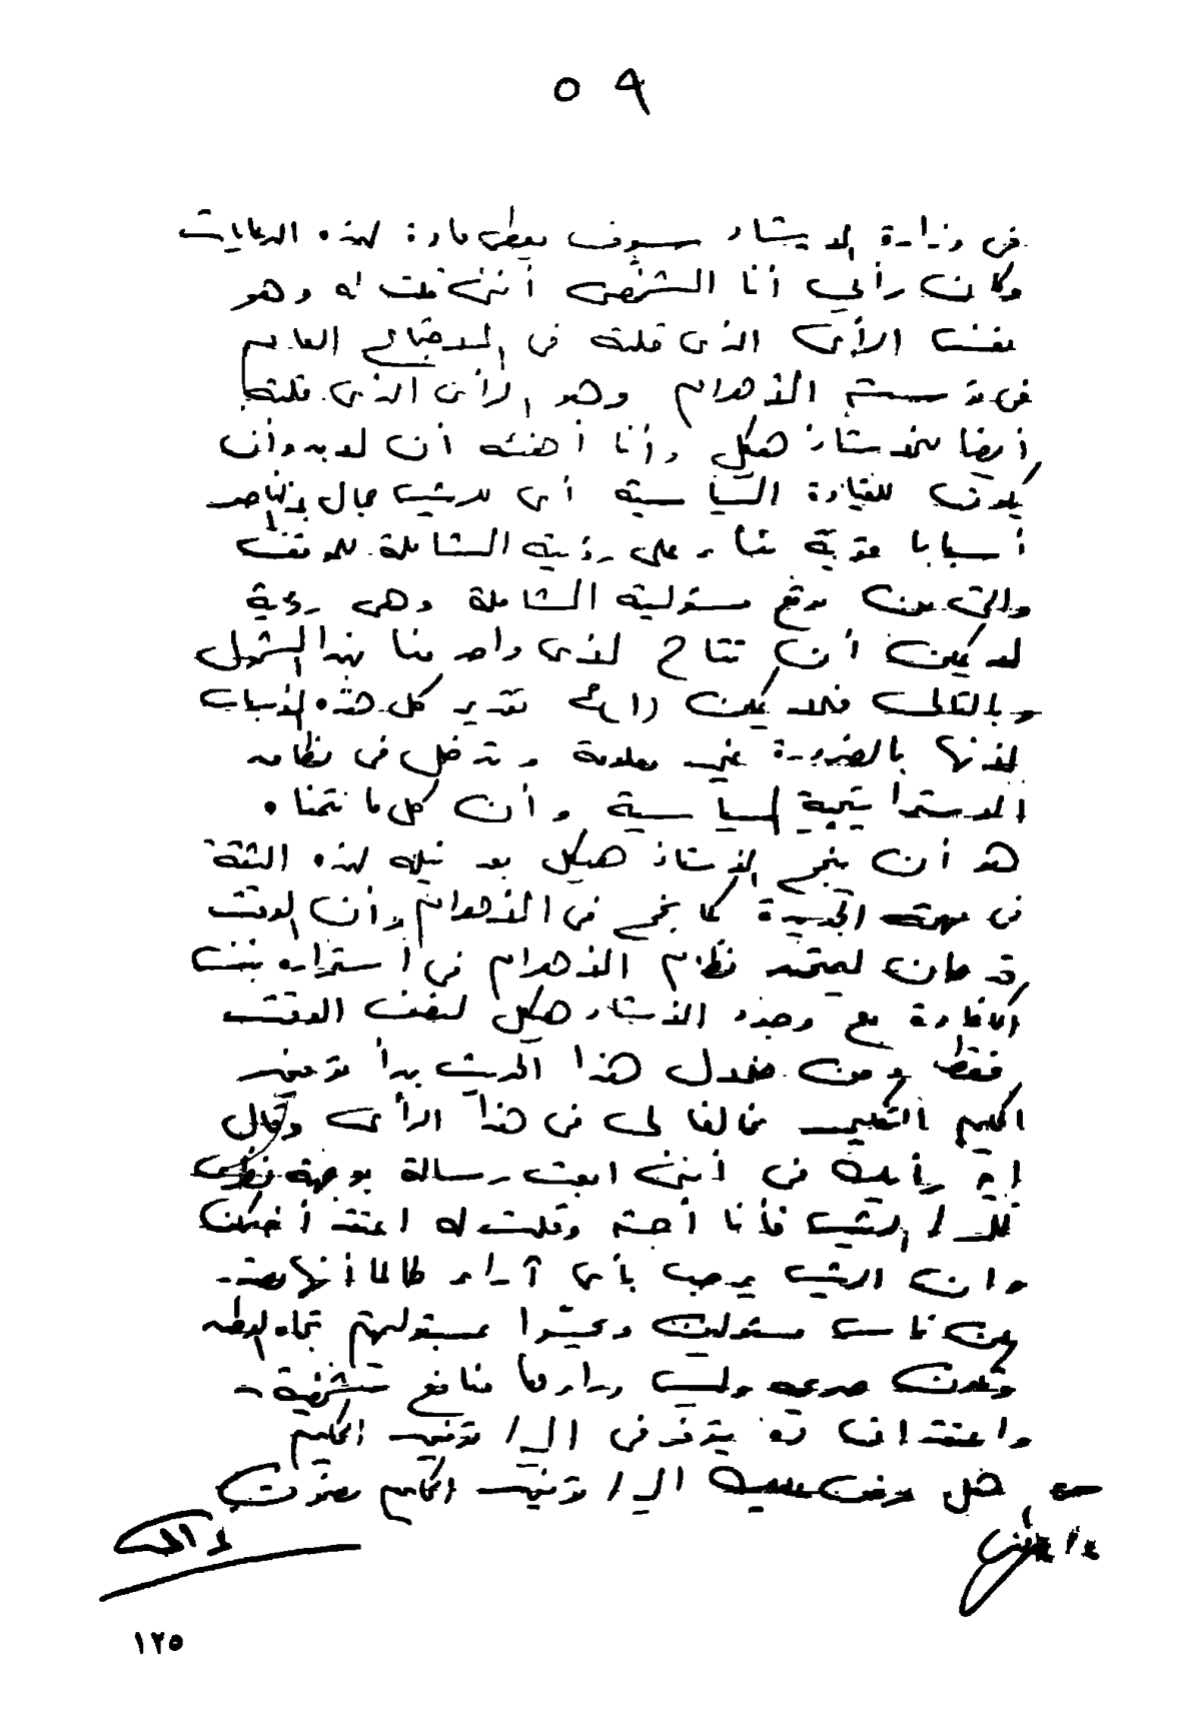 ٥٩
فى وزارة الارشاد سوف يعطى مادة لهذه الدعايات
وكان رأيى أنا الشخصى أننى قلت له وهو
نفس الرأى الذى قلته فى الاجتماع العام
فى قسم الأهرام وهو الرأى الذى قلته
أيضا للأستاذ هيكل وأنا أهنئه أن لابد وأن
يكون للقيادة السياسية أى للرئيس جمال عبد الناصر
أسبابا قوية بناء على رؤيته الشاملة للموقف
والتى من موقع مسئوليته الشاملة وهى رؤية
لا يمكن أن تتاح لأى واحد منا بهذا الشمول
وبالتالى فلا يمكن تقدير كل هذه الأسباب
لأنها بالضرورة غير معلومة وتدخل فى نطاق
الاستراتيجية السياسية وأن كل ما نتمناه
هو أن ينجح الأستاذ هيكل بعد نيله لهذه الثقة
فى مهمته الجديدة كما نجح فى الأهرام وأن الوقت
قد حان ليعتمد نظام الأهرام فى استمراره بنفس
الكفاءة مع وجود الأستاذ هيكل لبعض الوقت
فقط ومن خلال هذا الحديث بدأ توفيق
الحكيم مخالفا لى فى هذا الرأى وقال
إيه رأيك فى أننى ابعت رسالة بوجهة نظرى
للرئيس فأنا أحبه وقلت له اعتقد أنه يمكن
وان الرئيس يرحب بأى آراء طالما أنها تصدر
من ناس مسئولين ويحسوا بمسئوليتهم تجاه الوطن
وتكون صريحة وليس وراءها منافع شخصية -
واعتقد انك السيد/ توفيق الحكيم
س هل عرض عليك السيد/ توفيق الحكيم مضمون
١٢٥